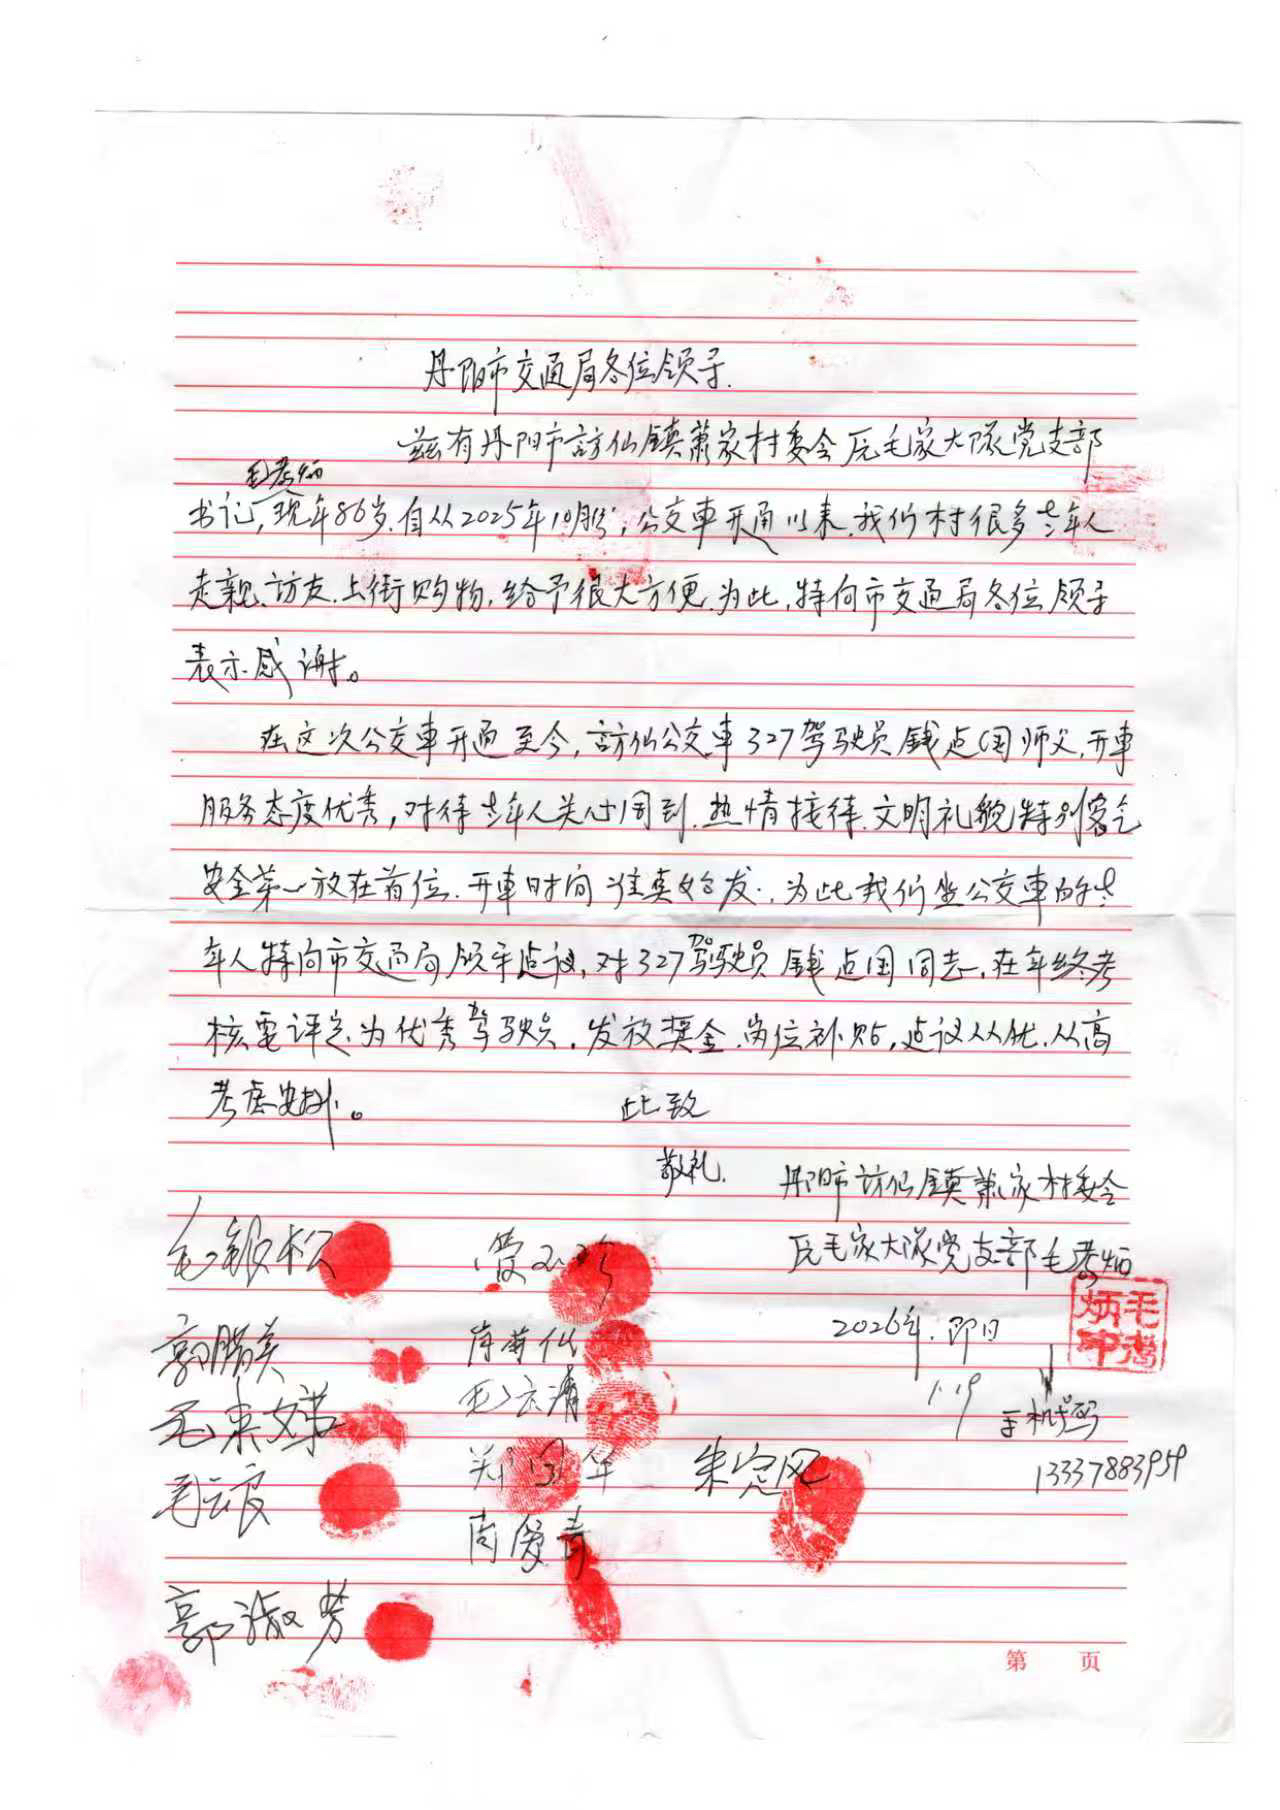 丹阳市交通局各位领导.
兹有丹阳市访仙镇萧家村委会原毛家大队党支部
毛考炳
书记,现年86岁.自从2025年10月份,公交車开通以来.我们村很多老年人
走親、访友、上街购物,给予很大方便.为此,特向市交通局各位领导
表示感谢。
在这次公交車开通至今,訪仙公交車327驾驶员钱建国师父,开車
服务态度优秀,对待老年人关心周到.热情接待.文明礼貌特别客气
安全第一放在首位.开車时间准真始发.为此我们坐公交車的老
年人特向市交通局领导建议,对327驾驶员钱建国同志,在年终考
核要评定为优秀驾驶员.发放奖金.岗位补贴,建议从优.从高
考虑安排。 此致
敬礼.
丹阳市访仙镇萧家村委会
原毛家大队党支部毛考炳
毛考炳印
2026年.即日
1.19
手机号码
13337883959
毛银松
郭腊美
毛来娣
毛云良
郭淑芳
肖菊仙
毛云清
郑国华
周爱青
朱定风
第 页